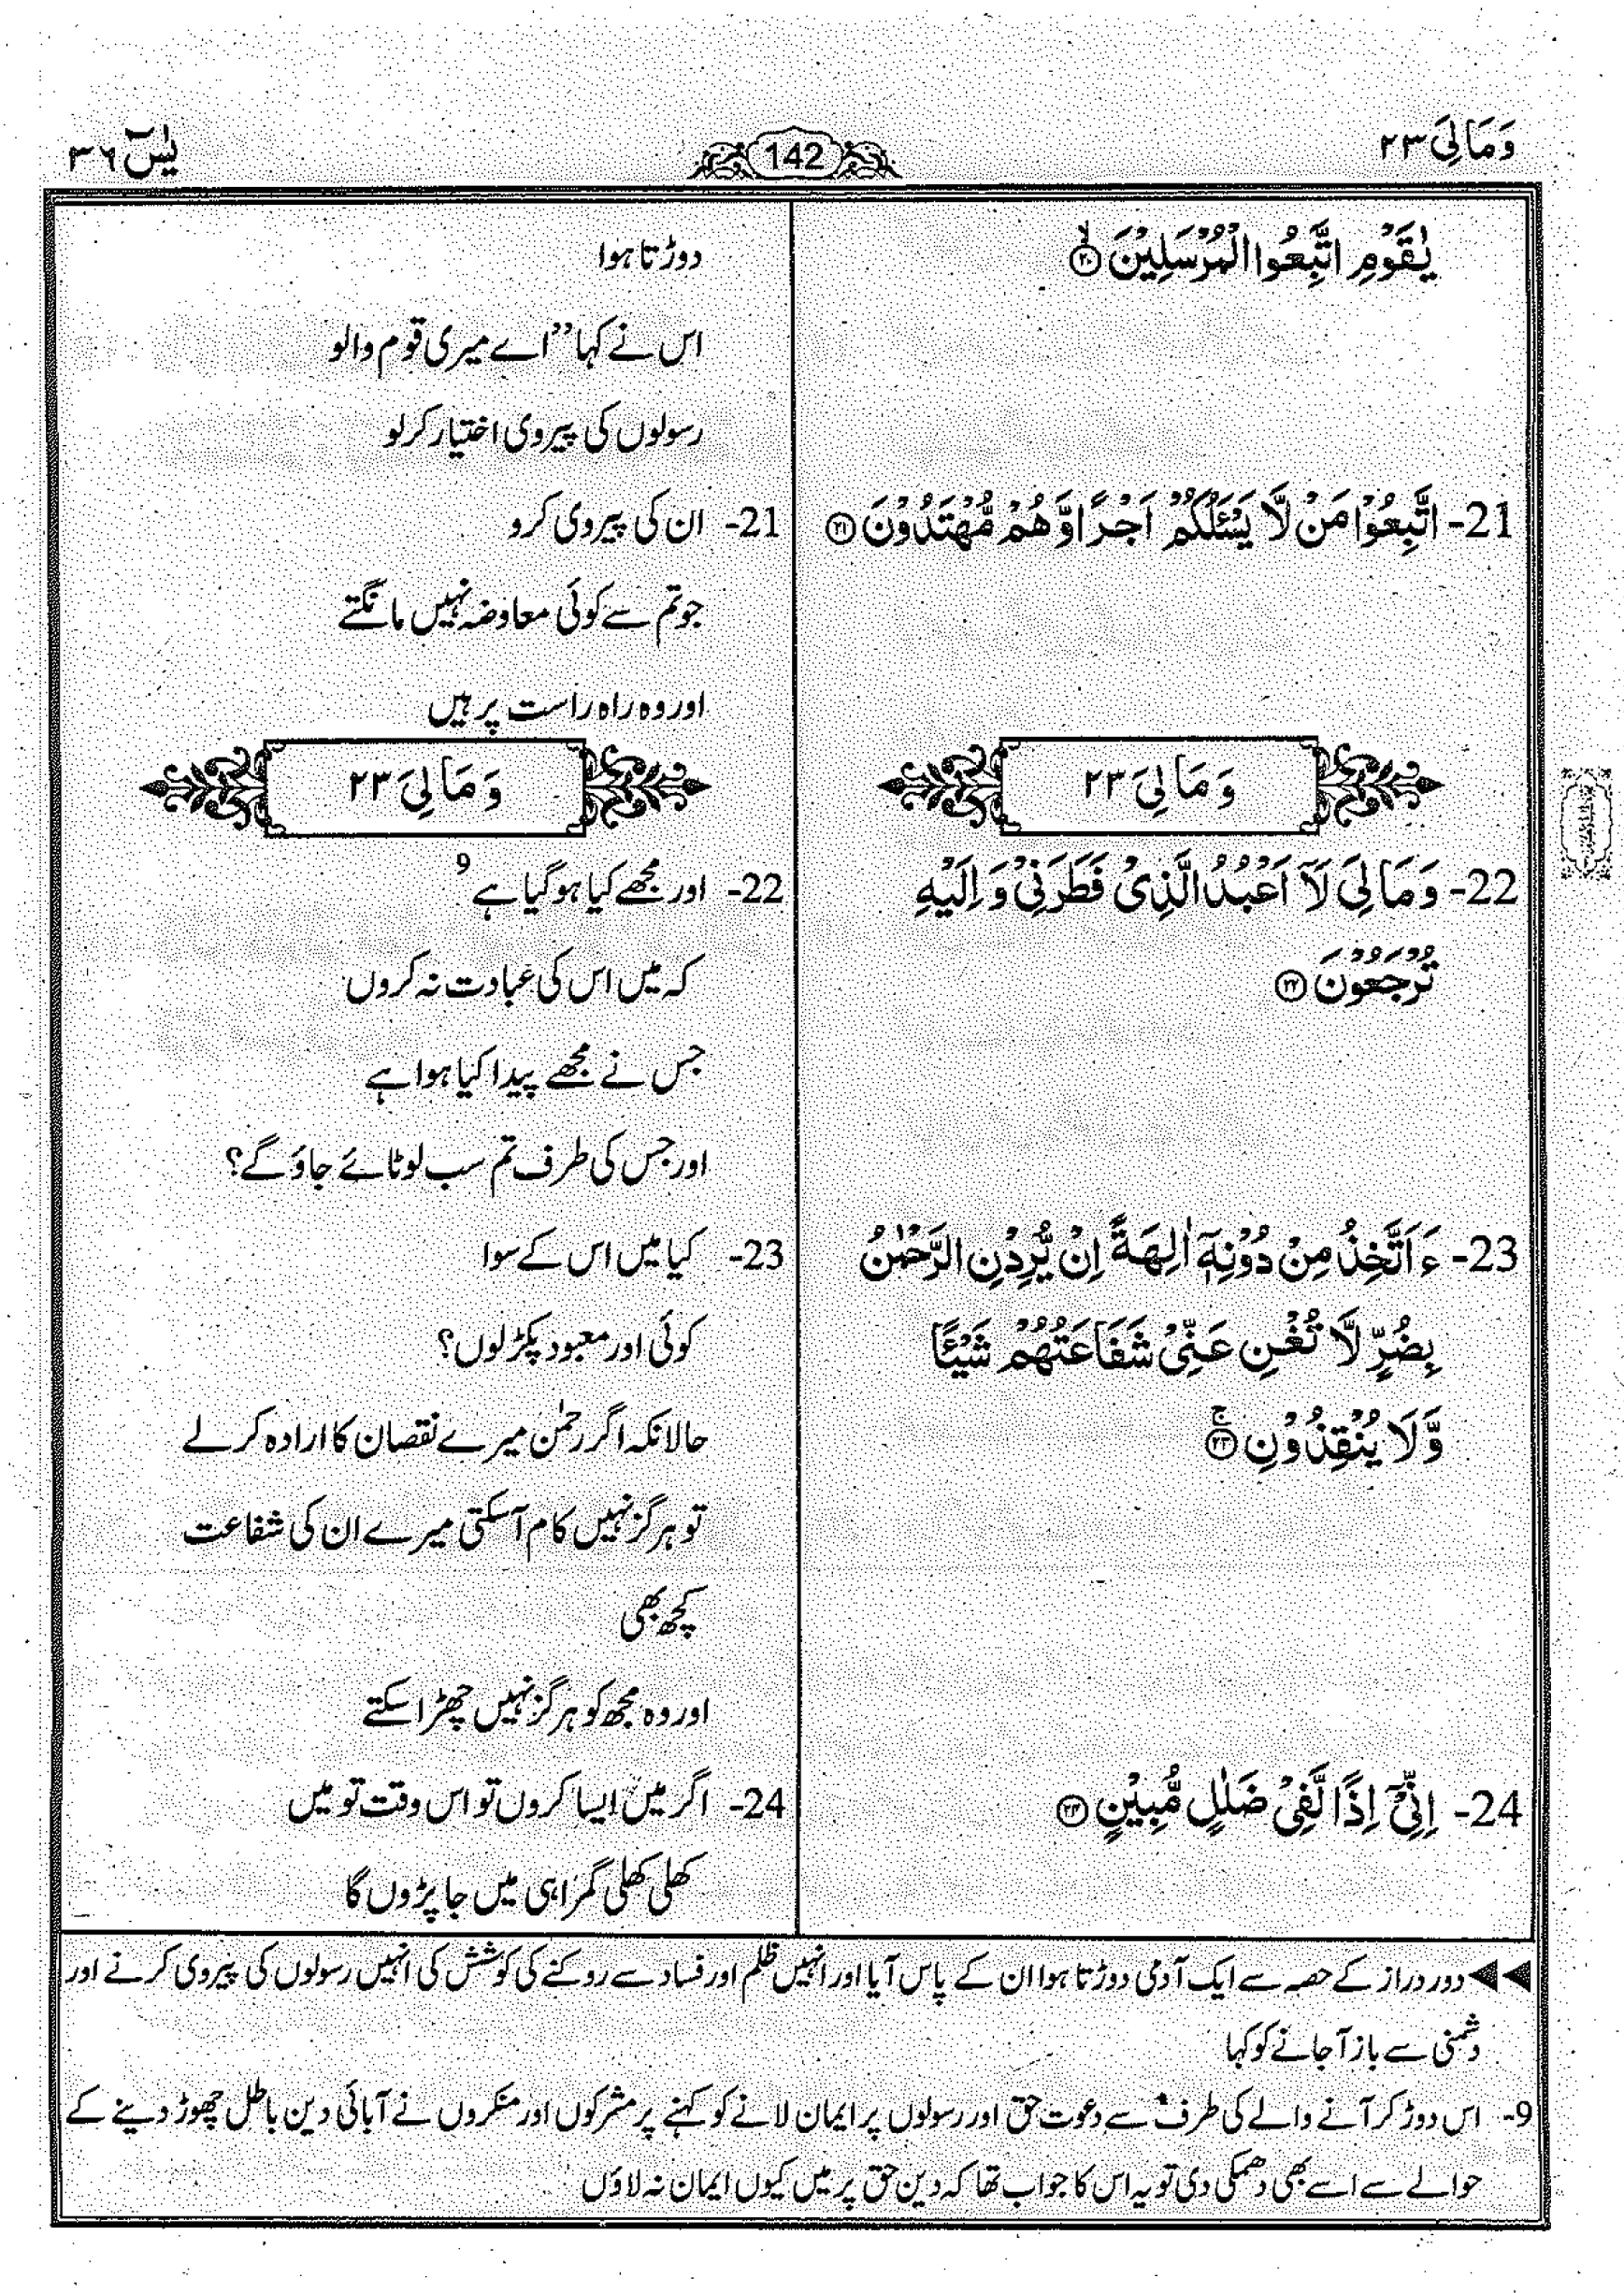 وَمَالِیَ ۲۳
142
یٰسٓ ۳۶
یٰقَوْمِ اتَّبِعُوا الْمُرْسَلِیْنَ ﴿۲۰﴾ۙ
دوڑتا ہوا
اس نے کہا ’’اے میری قوم والو
رسولوں کی پیروی اختیار کرلو
21- اتَّبِعُوْا مَنْ لَّا یَسْـَٔلُكُمْ اَجْرًا وَّهُمْ مُّهْتَدُوْنَ ﴿۲۱﴾
21- ان کی پیروی کرو
جو تم سے کوئی معاوضہ نہیں مانگتے
اور وہ راہ راست پر ہیں
وَمَالِیَ ۲۳
وَمَالِیَ ۲۳
22- وَمَا لِیَ لَاۤ اَعْبُدُ الَّذِیْ فَطَرَنِیْ وَ اِلَیْهِ
تُرْجَعُوْنَ ﴿۲۲﴾
22- اور مجھے کیا ہوگیا ہے 9
کہ میں اس کی عبادت نہ کروں
جس نے مجھے پیدا کیا ہوا ہے
اور جس کی طرف تم سب لوٹائے جاؤ گے؟
23- ءَاَتَّخِذُ مِنْ دُوْنِهٖۤ اٰلِهَةً اِنْ یُّرِدْنِ الرَّحْمٰنُ
بِضُرٍّ لَّا تُغْنِ عَنِّیْ شَفَاعَتُهُمْ شَیْـًٔا
وَّلَا یُنْقِذُوْنِ ﴿۲۳﴾ۚ
23- کیا میں اس کے سوا
کوئی اور معبود پکڑلوں؟
حالانکہ اگر رحمٰن میرے نقصان کا ارادہ کرلے
تو ہرگز نہیں کام آسکتی میرے ان کی شفاعت
کچھ بھی
اور وہ مجھ کو ہرگز نہیں چھڑا سکتے
24- اِنِّیْۤ اِذًا لَّفِیْ ضَلٰلٍ مُّبِیْنٍ ﴿۲۴﴾
24- اگر میں ایسا کروں تو اس وقت تو میں
کھلی کھلی گمراہی میں جا پڑوں گا
◀◀ دور دراز کے حصہ سے ایک آدمی دوڑتا ہوا ان کے پاس آیا اور انہیں ظلم اور فساد سے روکنے کی کوشش کی انہیں رسولوں کی پیروی کرنے اور
دشمنی سے باز آجانے کو کہا
9- اس دوڑ کر آنے والے کی طرف سے دعوت حق اور رسولوں پر ایمان لانے کو کہنے پر مشرکوں اور منکروں نے آبائی دین باطل چھوڑ دینے کے
حوالے سے اسے بھی دھمکی دی تو یہ اس کا جواب تھا کہ دین حق پر میں کیوں ایمان نہ لاؤں